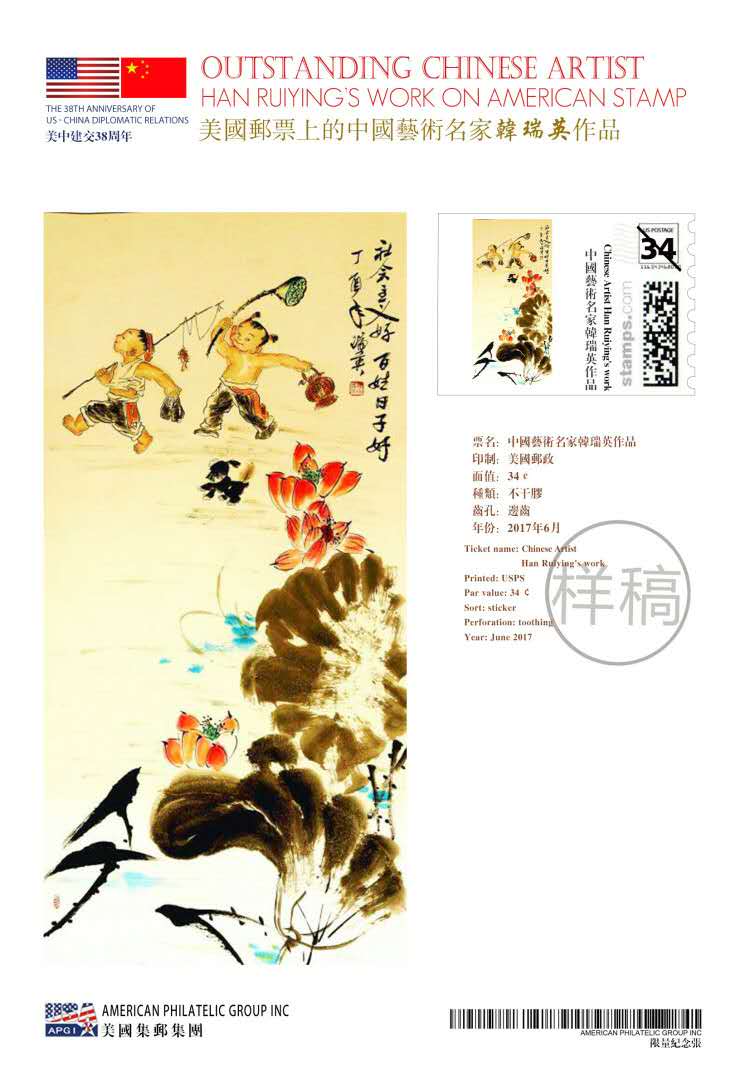 OUTSTANDING CHINESE ARTIST
HAN RUIYING'S WORK ON AMERICAN STAMP
美國郵票上的中國藝術名家韓瑞英作品
THE 38TH ANNIVERSARY OF
US - CHINA DIPLOMATIC RELATIONS
美中建交38周年
社会主义好 百姓日子好
丁酉年 瑞英
US POSTAGE
34
Chinese Artist Han Ruiying's work
中國藝術名家韓瑞英作品
stamps.com
票名: 中國藝術名家韓瑞英作品
印制: 美國郵政
面值: 34 ¢
種類: 不干膠
齒孔: 邊齒
年份: 2017年6月
Ticket name: Chinese Artist
Han Ruiying's work
Printed: USPS
Par value: 34 ¢
Sort: sticker
Perforation: toothing
Year: June 2017
样稿
APGI
AMERICAN PHILATELIC GROUP INC
美國集郵集團
AMERICAN PHILATELIC GROUP INC
限量紀念張